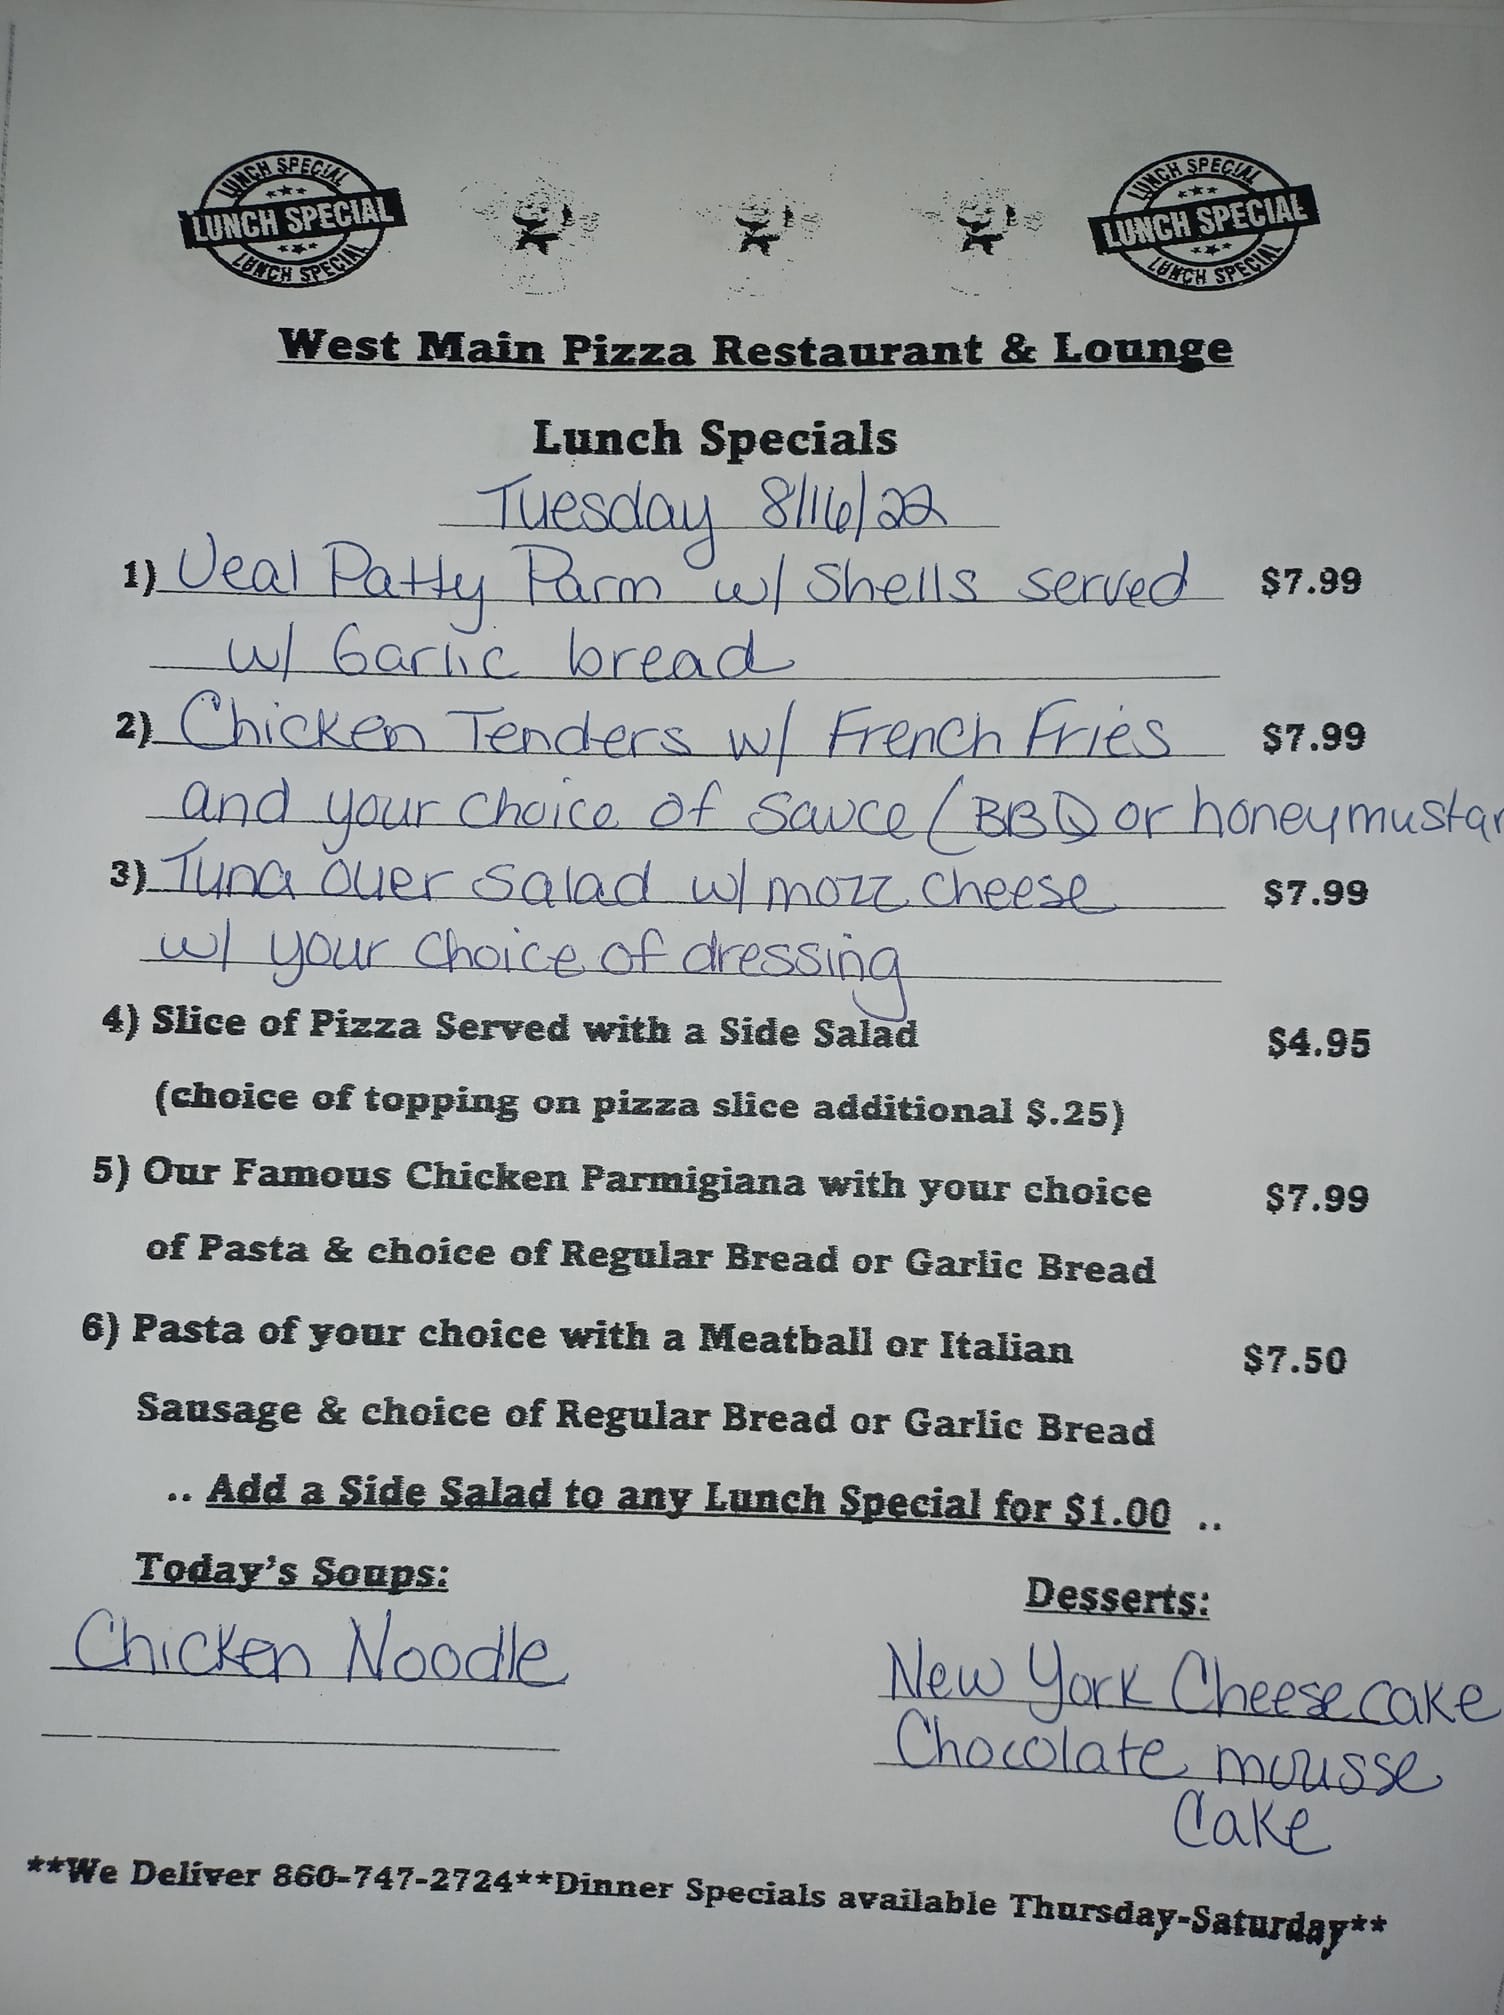 LUNCH SPECIAL
LUNCH SPECIAL
LUNCH SPECIAL
LUNCH SPECIAL
LUNCH SPECIAL
LUNCH SPECIAL
West Main Pizza Restaurant & Lounge
Lunch Specials
Tuesday 8/16/22
1) Veal Patty Parm w/ Shells served $7.99
w/ Garlic bread
2) Chicken Tenders w/ French Fries $7.99
and your choice of sauce (BBQ or honeymustar
3) Tuna over salad w/ mozz cheese $7.99
w/ your choice of dressing
4) Slice of Pizza Served with a Side Salad $4.95
(choice of topping on pizza slice additional $.25)
5) Our Famous Chicken Parmigiana with your choice $7.99
of Pasta & choice of Regular Bread or Garlic Bread
6) Pasta of your choice with a Meatball or Italian $7.50
Sausage & choice of Regular Bread or Garlic Bread
.. Add a Side Salad to any Lunch Special for $1.00 ..
Today's Soups:
Chicken Noodle
Desserts:
New York Cheesecake
Chocolate mousse
Cake
**We Deliver 860-747-2724**Dinner Specials available Thursday-Saturday**